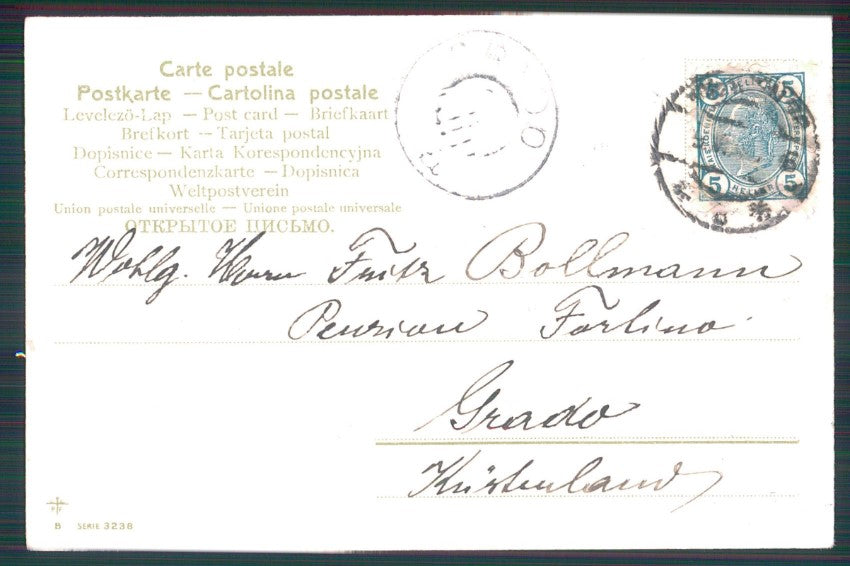 Carte postale
Postkarte — Cartolina postale
Levelező-Lap — Post card — Briefkaart
Brefkort — Tarjeta postal
Dopisnice — Karta Korespondencyjna
Correspondenzkarte — Dopisnica
Weltpostverein
Union postale universelle — Unione postale universale
ОТКРЫТОЕ ПИСЬМО.
GRADO
5 5
5 5
HELLER
Wohlg. Herrn Fritz Bollmann
Pension Fortino
Grado
Küstenland
B SERIE 3238